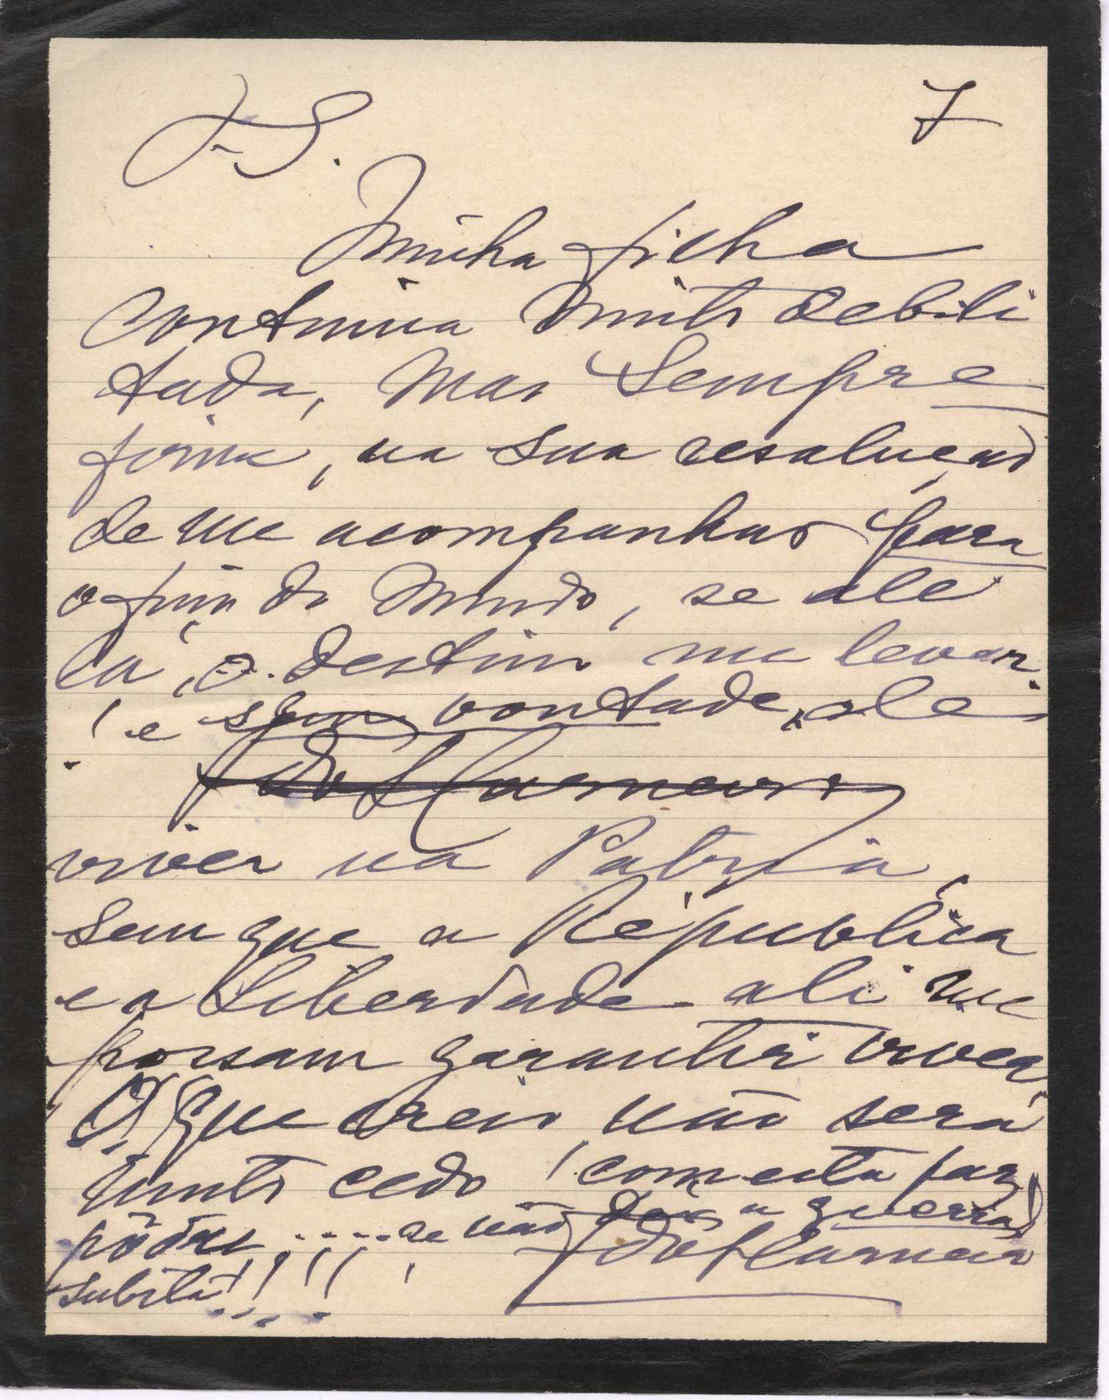 7
Minha filha
continua muito debili
tada, mas sempre
firme, na sua resolução
de me acompanhar para
o fim do Mundo, se ate
lá, o destino me levar.
! e sem vontade, de
viver na Patria,
sem que a Republica
e a Liberdade ali me
possam garantir viver.
O que creio não será
muito cedo! com esta paz
pôdre, .... se não a guerra
subita!!!